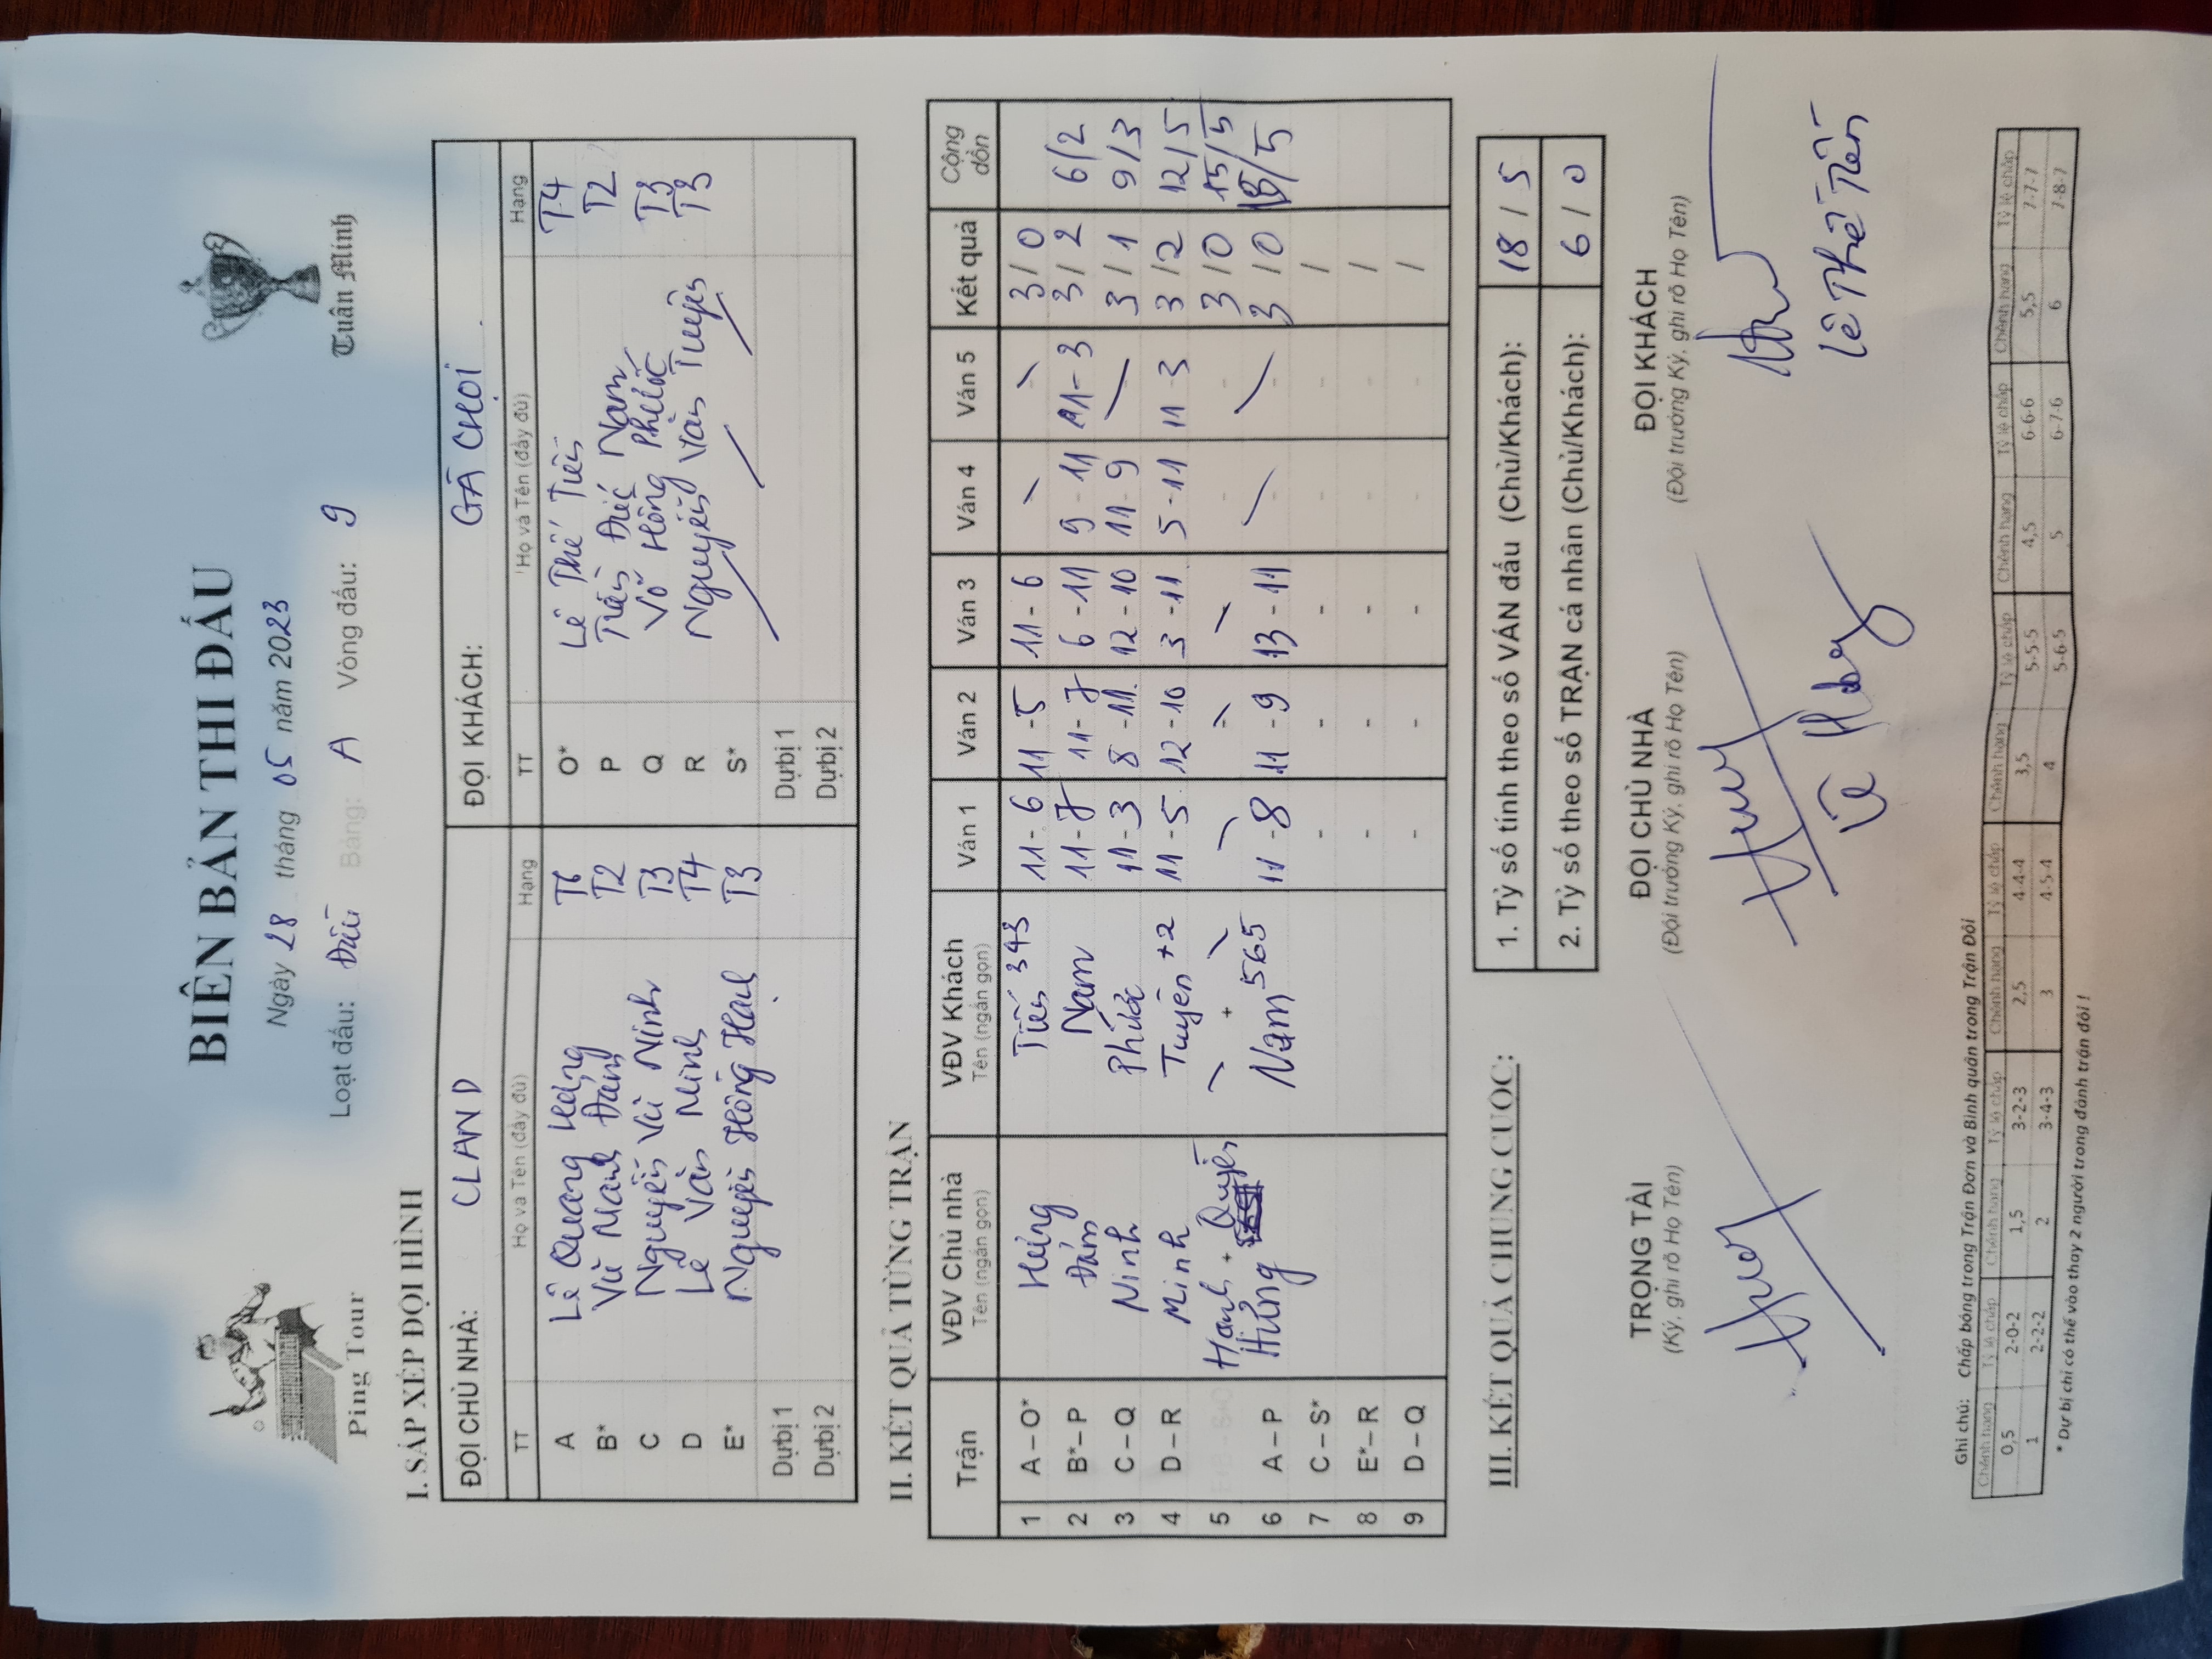 BIÊN BẢN THI ĐẤU
Ngày 28 tháng 05 năm 2023
Loạt đấu: Đấu Bảng: A Vòng đấu: 9
Ping Tour
Tuân Minh
I. SẮP XẾP ĐỘI HÌNH
ĐỘI CHỦ NHÀ: CLAND ĐỘI KHÁCH: GÀ CHỌI
TT Họ và Tên (đầy đủ) Hạng TT Họ và Tên (đầy đủ) Hạng
A Lê Quang Hưng T6 O* Lê Thế Tiến T4
B* Vũ Mạnh Đám T2 P Trần Đức Nam T2
C Nguyễn Vũ Ninh T3 Q Võ Hồng Phước T3
D Lê Văn Minh T4 R Nguyễn Văn Tuyên T3
E* Nguyễn Hồng Hạnh T3 S*
Dự bị 1 Dự bị 1
Dự bị 2 Dự bị 2
II. KẾT QUẢ TỪNG TRẬN
Trận VĐV Chủ nhà VĐV Khách Ván 1 Ván 2 Ván 3 Ván 4 Ván 5 Kết quả Cộng dồn
Tên (ngắn gọn) Tên (ngắn gọn)
1 A – O* Hưng Tiến 343 11 - 6 11 - 5 11 - 6 3 / 0
2 B* – P Đám Nam 11 - 7 11 - 7 6 - 11 9 - 11 11 - 3 3 / 2 6/2
3 C – Q Ninh Phước 11 - 3 8 - 11 12 - 10 11 - 9 3 / 1 9/3
4 D – R Minh Tuyên +2 11 - 5 12 - 10 3 - 11 5 - 11 11 - 3 3 / 2 12/5
5 Hạnh + Quyên + 3 / 0 15/5
6 A – P Hưng Nam 565 11 - 8 11 - 9 13 - 11 3 / 0 18/5
7 C – S* - - - - - /
8 E* – R - - - - - /
9 D – Q - - - - - /
III. KẾT QUẢ CHUNG CUỘC:
1. Tỷ số tính theo số VÁN đấu (Chủ/Khách): 18 / 5
2. Tỷ số theo số TRẬN cá nhân (Chủ/Khách): 6 / 0
TRỌNG TÀI ĐỘI CHỦ NHÀ ĐỘI KHÁCH
(Ký, ghi rõ Họ Tên) (Đội trưởng Ký, ghi rõ Họ Tên) (Đội trưởng Ký, ghi rõ Họ Tên)
Lê Thế Tiến
Ghi chú: Chấp bóng trong Trận Đơn và Bình quân trong Trận Đôi
Chênh hạng Tỷ lệ chấp Chênh hạng Tỷ lệ chấp Chênh hạng Tỷ lệ chấp Chênh hạng Tỷ lệ chấp Chênh hạng Tỷ lệ chấp Chênh hạng Tỷ lệ chấp
0,5 2-0-2 1,5 3-2-3 2,5 4-4-4 3,5 5-5-5 4,5 6-6-6 5,5 7-7-7
1 2-2-2 2 3-4-3 3 4-5-4 4 5-6-5 5 6-7-6 6 7-8-7
* Dự bị chỉ có thể vào thay 2 người trong đánh trận đôi !